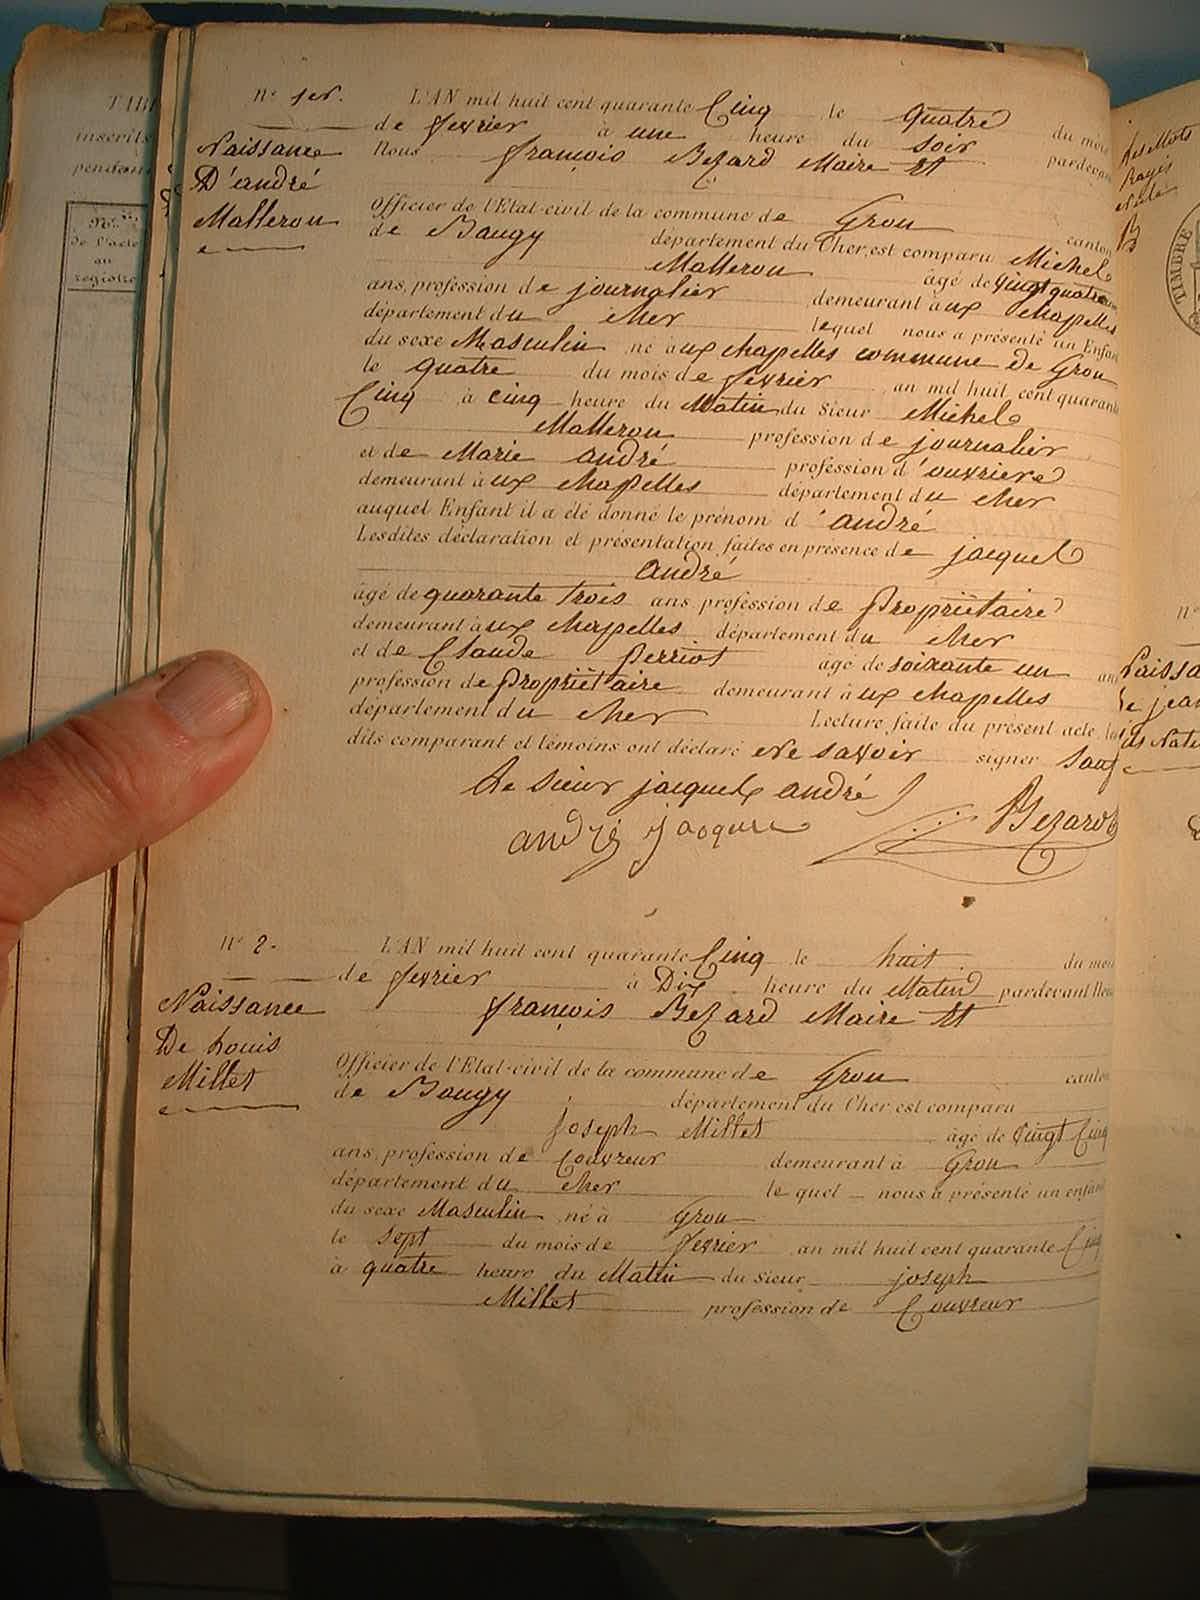 TABL
inscrits
pendant
Nos
de l'acte
au
registre
No 1er.
Naissance
D'andré
Malleron
L'AN mil huit cent quarante Cinq le quatre du mois
de fevrier à une heure du soir pardevant
Nous françois Bezard Maire Et
Officier de l'Etat-civil de la commune de Gron canton
de Baugy département du Cher, est comparu Michel
Malleron âgé de vingt quatre
ans, profession de journalier demeurant à aux chapelles
département du cher lequel nous a présenté un Enfant
du sexe Masculin né à aux chapelles commune de Gron
le quatre du mois de fevrier an mil huit cent quarante
Cinq à cinq heure du Matin du sieur Michel
Malleron profession de journalier
et de Marie andré profession d'ouvriere
demeurant à aux chapelles département du cher
auquel Enfant il a été donné le prénom d'andré
Lesdites déclaration et présentation faites en présence de jacques
andré
âgé de quarante trois ans, profession de Propriètaire
demeurant à aux chapelles département du cher
et de Claude Perriot âgé de soixante un ans
profession de Propriètaire demeurant à aux chapelles
département du cher Lecture faite du présent acte, les
dits comparant et témoins ont déclaré Ne savoir signer sauf
Le sieur jacques andré
andré jacque Bezard
No 2.
Naissance
De Louis
Millet
L'AN mil huit cent quarante Cinq le huit du mois
de fevrier à Dix heure du Matin pardevant Nous
françois Bezard Maire Et
Officier de l'Etat-civil de la commune de Gron canton
de Baugy département du Cher, est comparu
joseph Millet âgé de vingt Cinq
ans, profession de Couvreur demeurant à Gron
département du cher le quel nous a présenté un enfant
du sexe Masculin né à Gron
le sept du mois de fevrier an mil huit cent quarante Cinq
à quatre heure du Matin du sieur joseph
Millet profession de Couvreur
Les Mots
Rayés
B
TIMBRE
No
Naissa
De jean